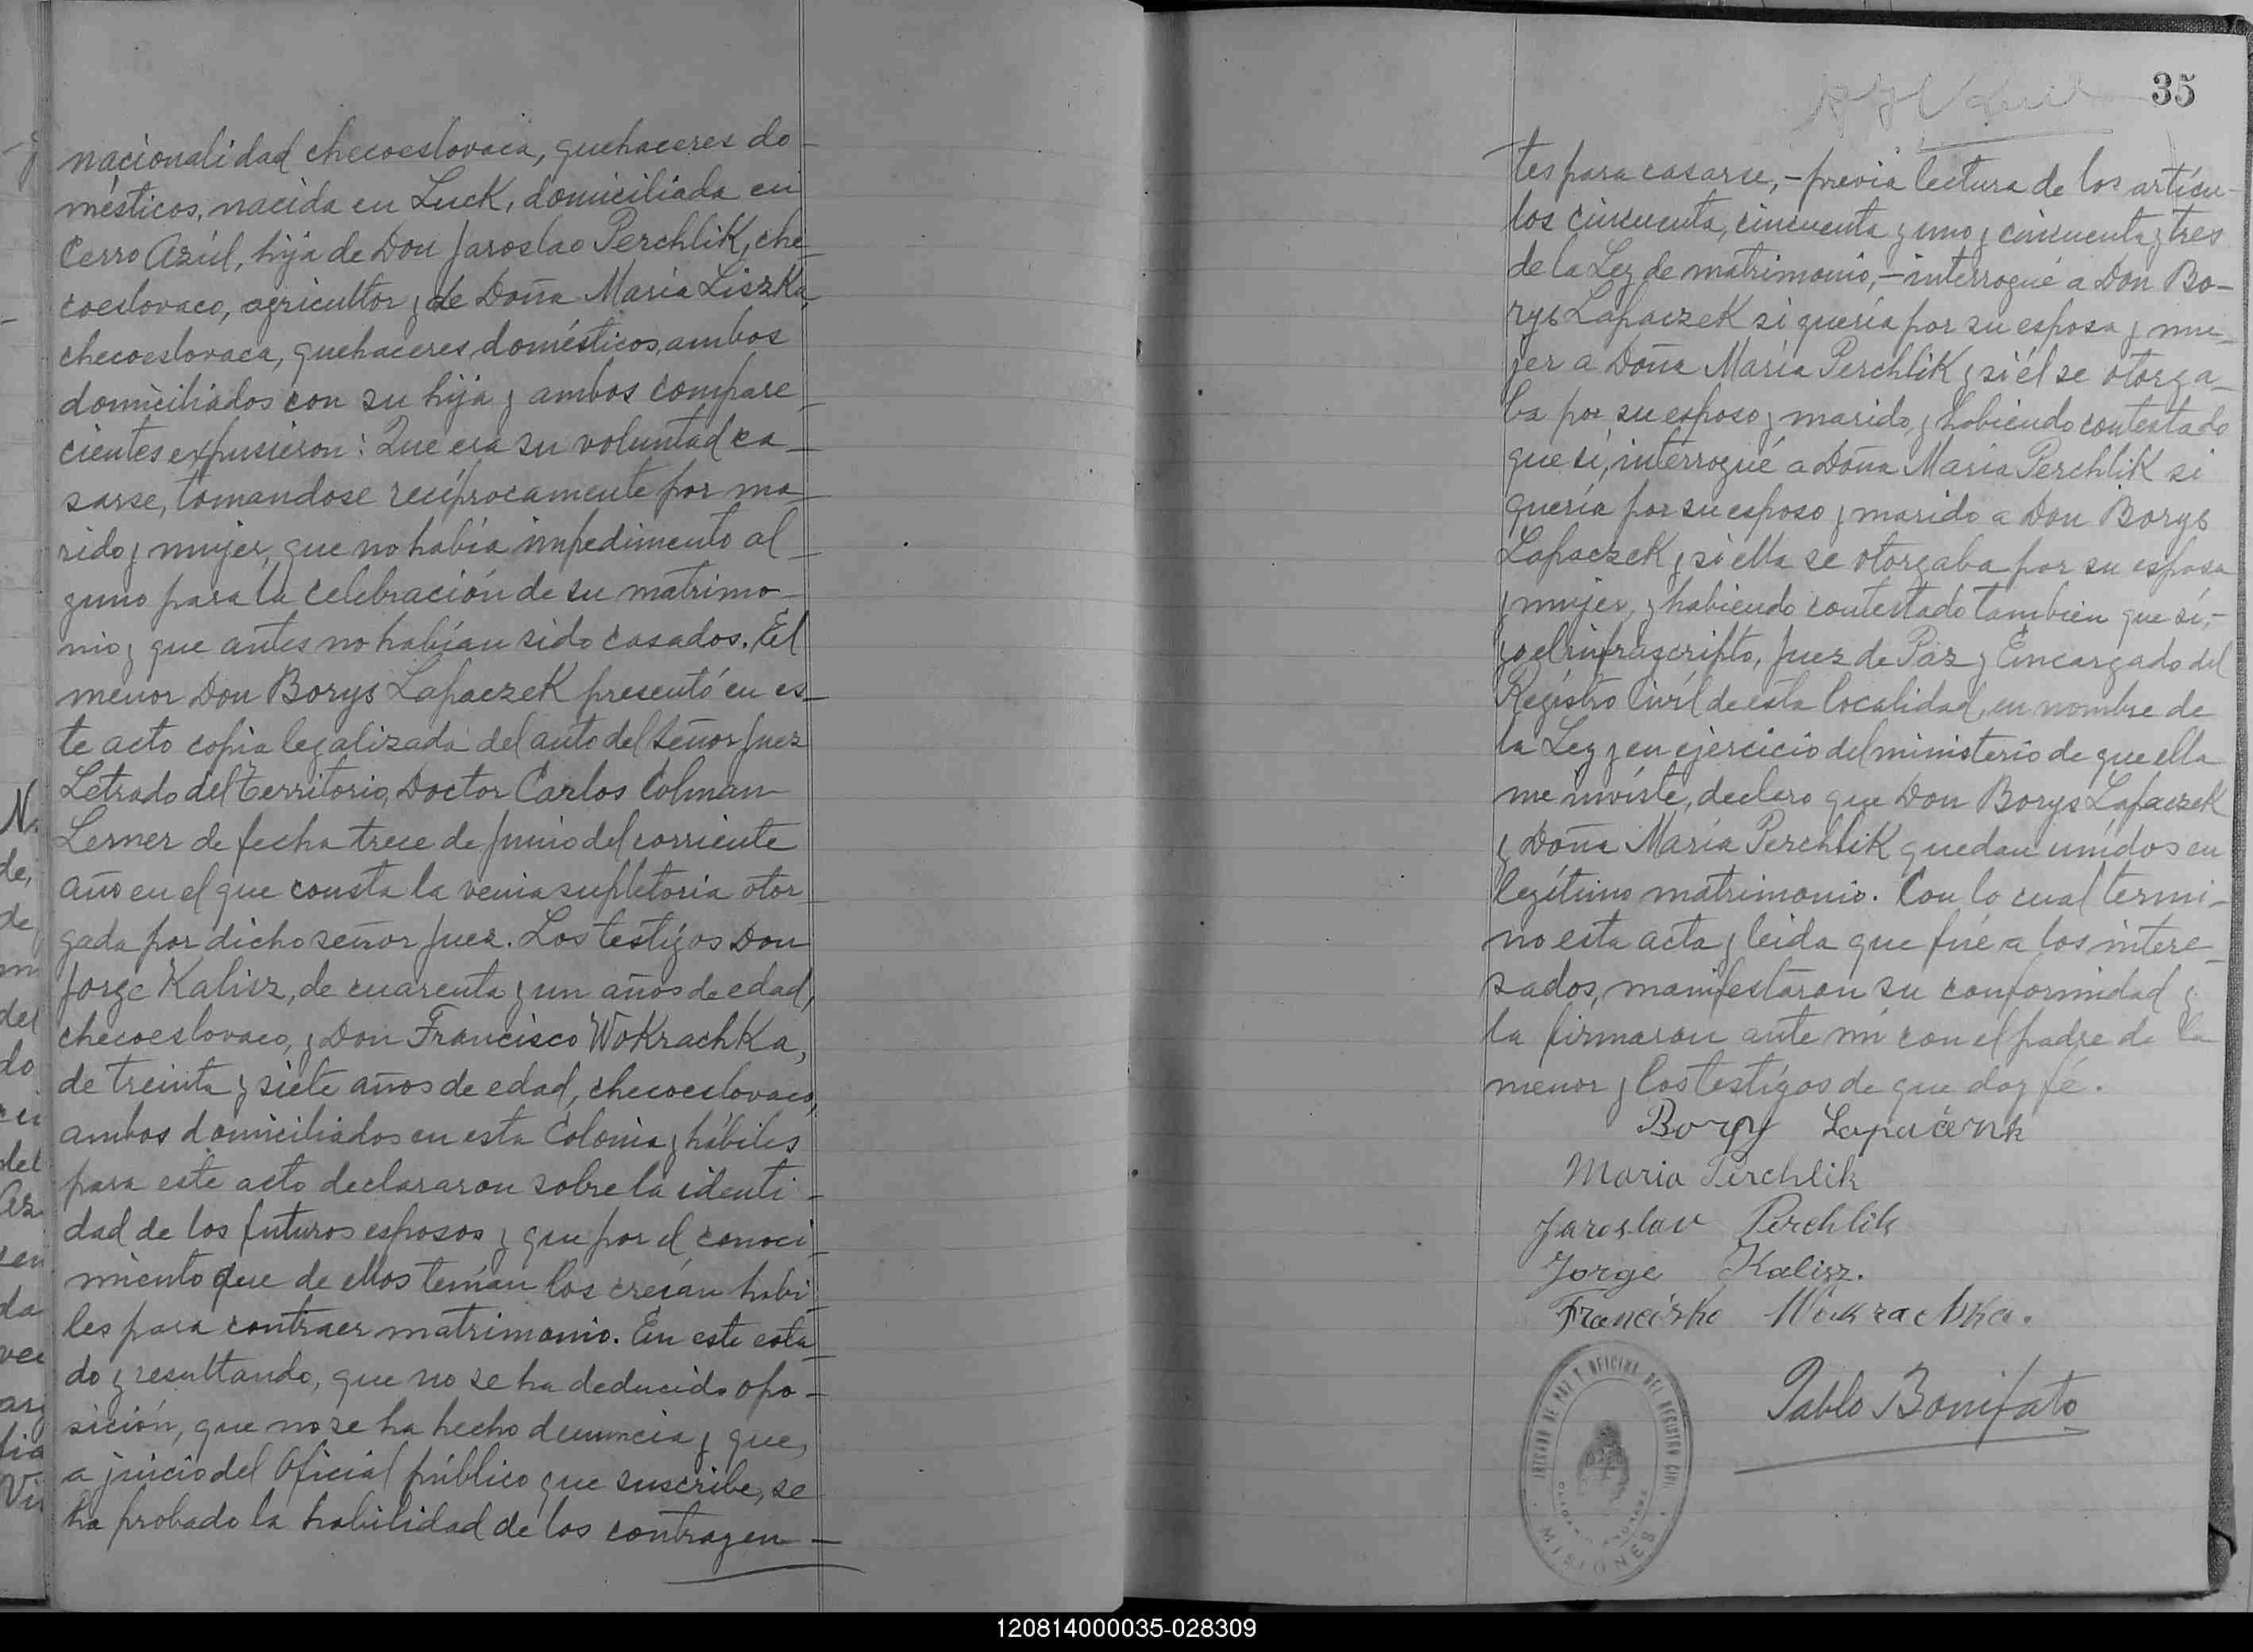 nacionalidad checoeslovaca, quehaceres do-
mésticos, nacida en Luck, domiciliada en
Cerro Azúl, hija de Don Jaroslao Perchlik, che-
coeslovaco, agricultor y de Doña María Liszka,
checoeslovaca, quehaceres domésticos, ambos
domiciliados con su hija y ambos compare-
cientes expusieron: Que era su voluntad ca-
sarse, tomandose recíprocamente por ma-
rido y mujer, que no había impedimento al-
guno para la celebración de su matrimo-
nio y que antes no habían sido casados. El
menor Don Borys Lapaczek presentó en es-
te acto copia legalizada del auto del Señor Juez
Letrado del Territorio, Doctor Carlos Colman
Lerner de fecha trece de Junio del corriente
año en el que consta la venia supletoria otor-
gada por dicho señor Juez. Los testigos Don
Jorge Kalisz, de cuarenta y un años de edad,
checoeslovaco, y Don Francisco Wokrachka,
de treinta y siete años de edad, checoeslovaco,
ambos domiciliados en esta Colonia y hábiles
para este acto declararon sobre la identi-
dad de los futuros esposos y que por el conoci-
miento que de ellos tenían los creían hábi-
les para contraer matrimonio. En este esta-
do y resultando, que no se ha deducido opo-
sición, que no se ha hecho denuncia y que,
a juicio del Oficial público que suscribe, se
ha probado la habilidad de los contrayen-
35
tes para casarse, - previa lectura de los artícu-
los cincuenta, cincuenta y uno y cincuenta y tres
de la Ley de matrimonio, - interrogué a Don Bo-
rys Lapaczek si quería por su esposa y mu-
jer a Doña María Perchlik y si él se otorga-
ba por su esposo y marido, y habiendo contestado
que sí, interrogué a Doña María Perchlik si
quería por su esposo y marido a Don Borys
Lapaczek y si ella se otorgaba por su esposa
y mujer, y habiendo contestado también que sí, -
yo el infrascripto, Juez de Paz y Encargado del
Registro Civíl de esta localidad, en nombre de
la Ley y en ejercicio del ministerio de que ella
me inviste, declaro que Don Borys Lapaczek
y Doña María Perchlik quedan unidos en
legítimo matrimonio. Con lo cual termi-
no esta acta y leida que fué a los intere-
sados, manifestaron su conformidad y
la firmaron ante mí con el padre de la
menor y los testigos de que doy fé.
Borys
Maria Perchlik
Jaroslav Perchlik
Jorge Kalisz.
Francisko Wokrachka.
Pablo Bonifato
JUZGADO DE PAZ Y OFICINA DEL REGISTRO CIVIL
MISIONES
120814000035-028309